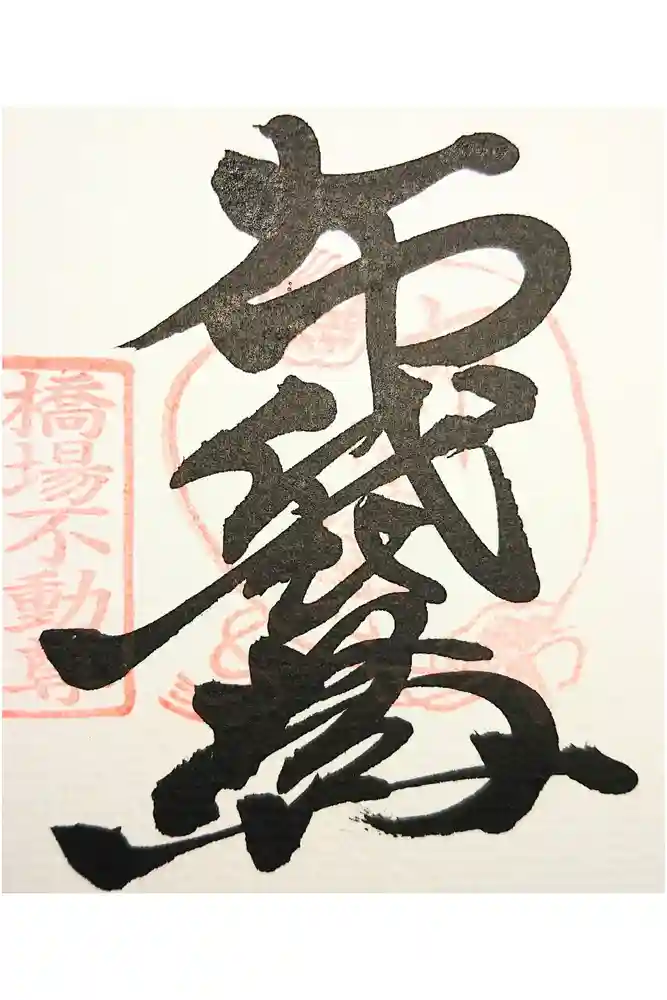 布袋尊
橋場不動尊